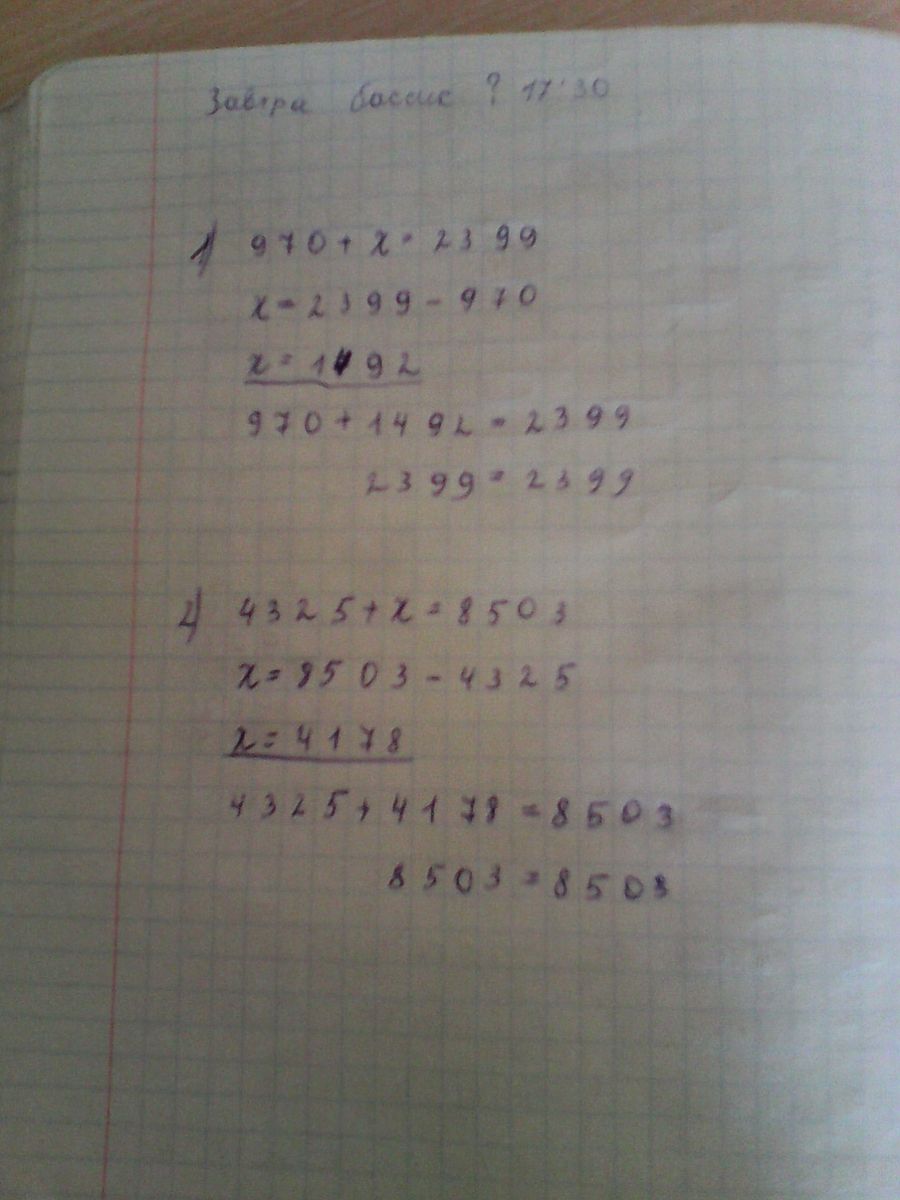 Завтра басик ? 17:30
1) 970 + x = 2399
x = 2399 - 970
x = 1492
970 + 1492 = 2399
2399 = 2399
2) 4325 + x = 8503
x = 8503 - 4325
x = 4178
4325 + 4178 = 8503
8503 = 8503